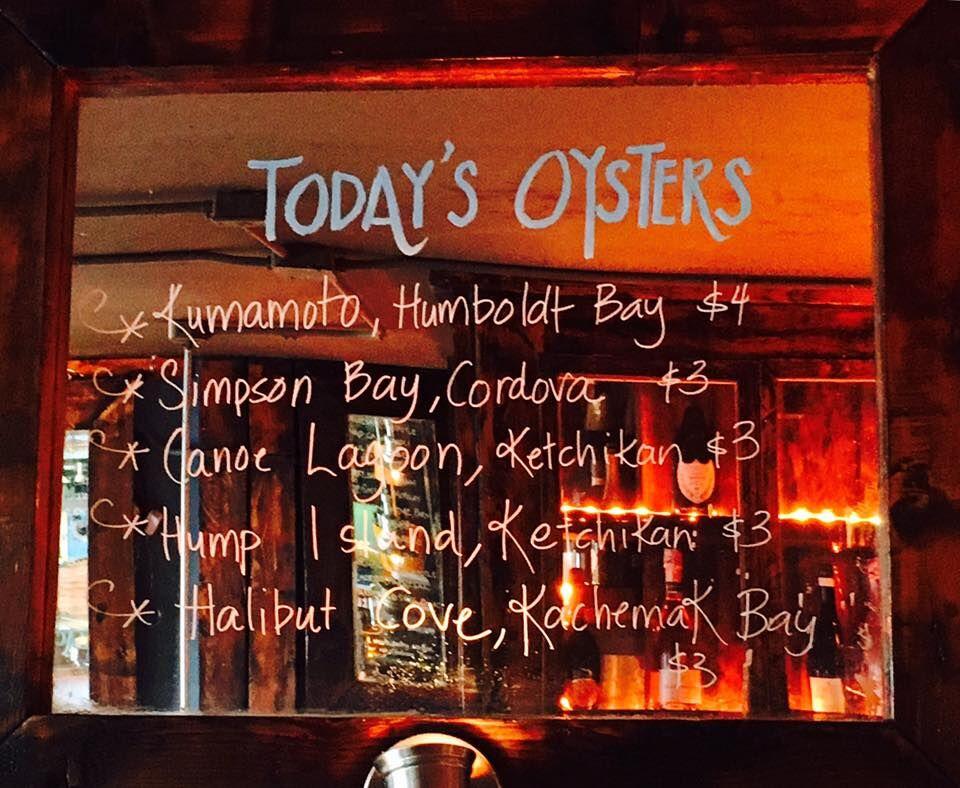 TODAY'S OYSTERS
* Kumamoto, Humboldt Bay $4
* Simpson Bay, Cordova $3
* Canoe Lagoon, Ketchikan $3
* Hump Island, Ketchikan $3
* Halibut Cove, Kachemak Bay
$3